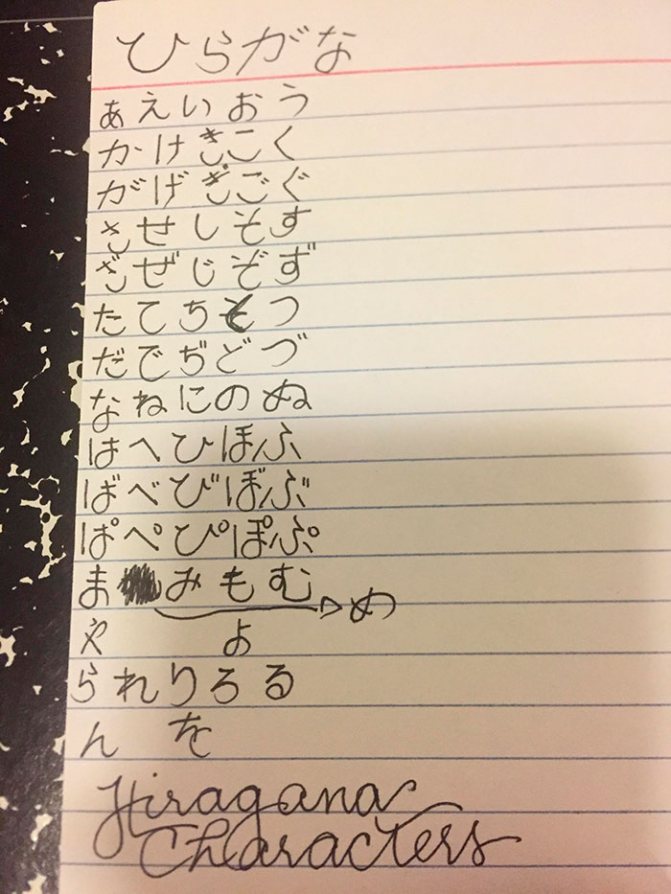 ひらがな
あえいおう
かけきこく
がげぎごぐ
させしそす
ざぜじぞず
たてちとつ
だでぢどづ
なねにのぬ
はへひほふ
ばべびぼぶ
ぱぺぴぽぷ
まみもむ→め
やよ
られりろる
んを
Hiragana
Characters